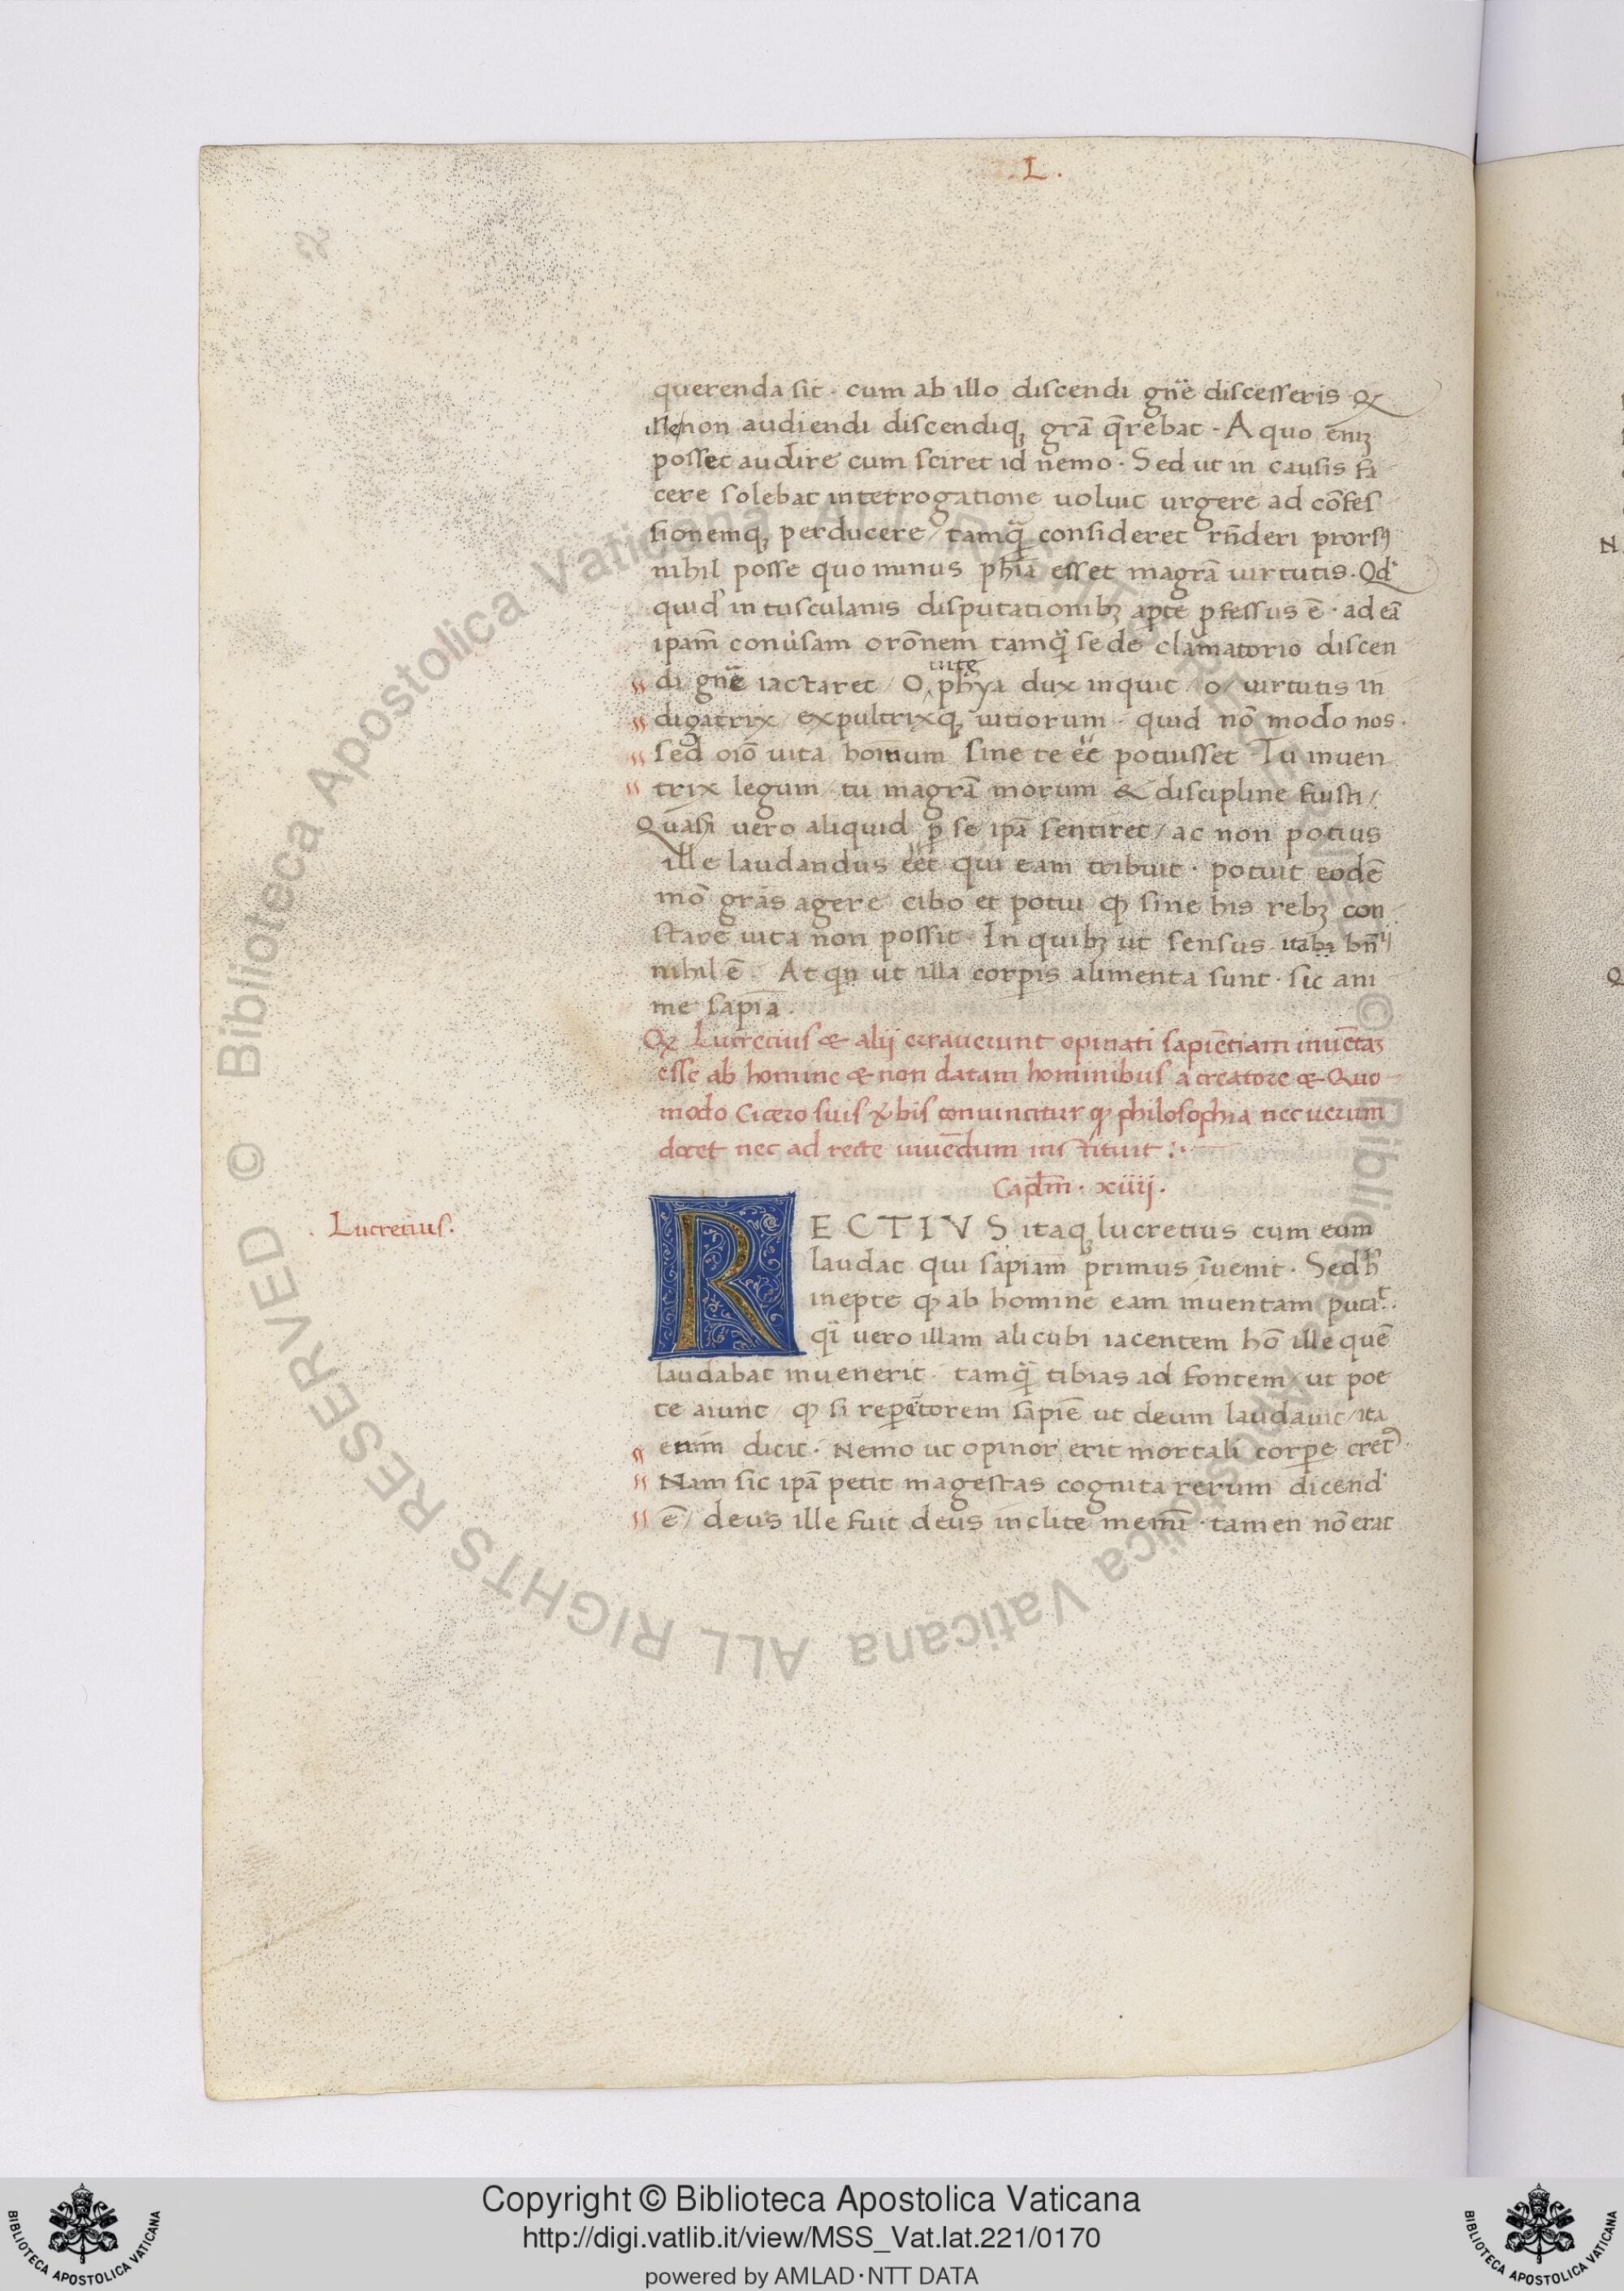 . L .
querenda sit · cum ab illo discendi gn̄e discesseris · &
ille non audiendi discendiqꝫ grā q̄rebat · A quo eniꝫ
posset audire cum sciret id nemo · Sed ut in causis fa
cere solebat interrogatione uoluit urgere ad cōfes
sionemqꝫ perducere / tamq̄ consideret rn̄deri prorsꝰ
nihil posse quo minus ph̄ia esset magrā uirtutis · Qd'
quid' in tusculanis disputationibꝫ apte ꝓfessus ē · ad eā
ipam̄ conuersam orōnem tamq̄ se de clamatorio discen
di gn̄e iactaret / O uite ph̄ya dux inquit / o / uirtutis in
digatrix / expultrixqꝫ uitiorum · quid nō modo nos ·
sed oīo uita hominum sine te eēt potuisset · Tu inuen
trix legum / tu magrā morum & discipline fuisti /
Quasi uero aliquid ꝑ se ipā sentiret / ac non potius
ille laudandus eēt qui eam tribuit · potuit eodē
mō grās agere cibo et potui ꝙ sine his rebꝫ con
stare uita non possit · In quibꝫ ut sensus
nihil ē · Atqn̄ ut illa corꝑis alimenta sunt · sic ani
me sapīa ·
Qꝫ Lucretius & alij errauerunt opinati sapiētiam inuētaꝫ
esse ab homine & non datam hominibus a creatore & Quo
modo Cicero suis ꝟbis conuincitur ꝙ philosophia nec uerum
docet nec ad recte uiuēdum instituit :·
Capl̄m · xiiij ·
· Lucretius ·
RECTIVS itaqꝫ lucretius cum eum
laudat qui sapiam̄ primus īuenit · Sed h̄
inepte ꝙ ab homine eam inuentam putat ·
qi uero illam alicubi iacentem hō ille quē
laudabat inuenerit · tamq̄ tibias ad fontem / ut poe
te aiunt / ꝙ si reꝑtorem sapiē ut deum laudauit / ita
enim dicit · Nemo ut opinor erit mortali corꝑe cret'
Nam sic ipā petit magestas cognita rerum dicend'
ē / deus ille fuit deus inclite memi · tamen nō erat
Copyright © Biblioteca Apostolica Vaticana
http://digi.vatlib.it/view/MSS_Vat.lat.221/0170
powered by AMLAD · NTT DATA
BIBLIOTECA APOSTOLICA VATICANA
BIBLIOTECA APOSTOLICA VATICANA
© Biblioteca Apostolica Vaticana ALL RIGHTS RESERVED
© Biblioteca Apostolica Vaticana ALL RIGHTS RESERVED